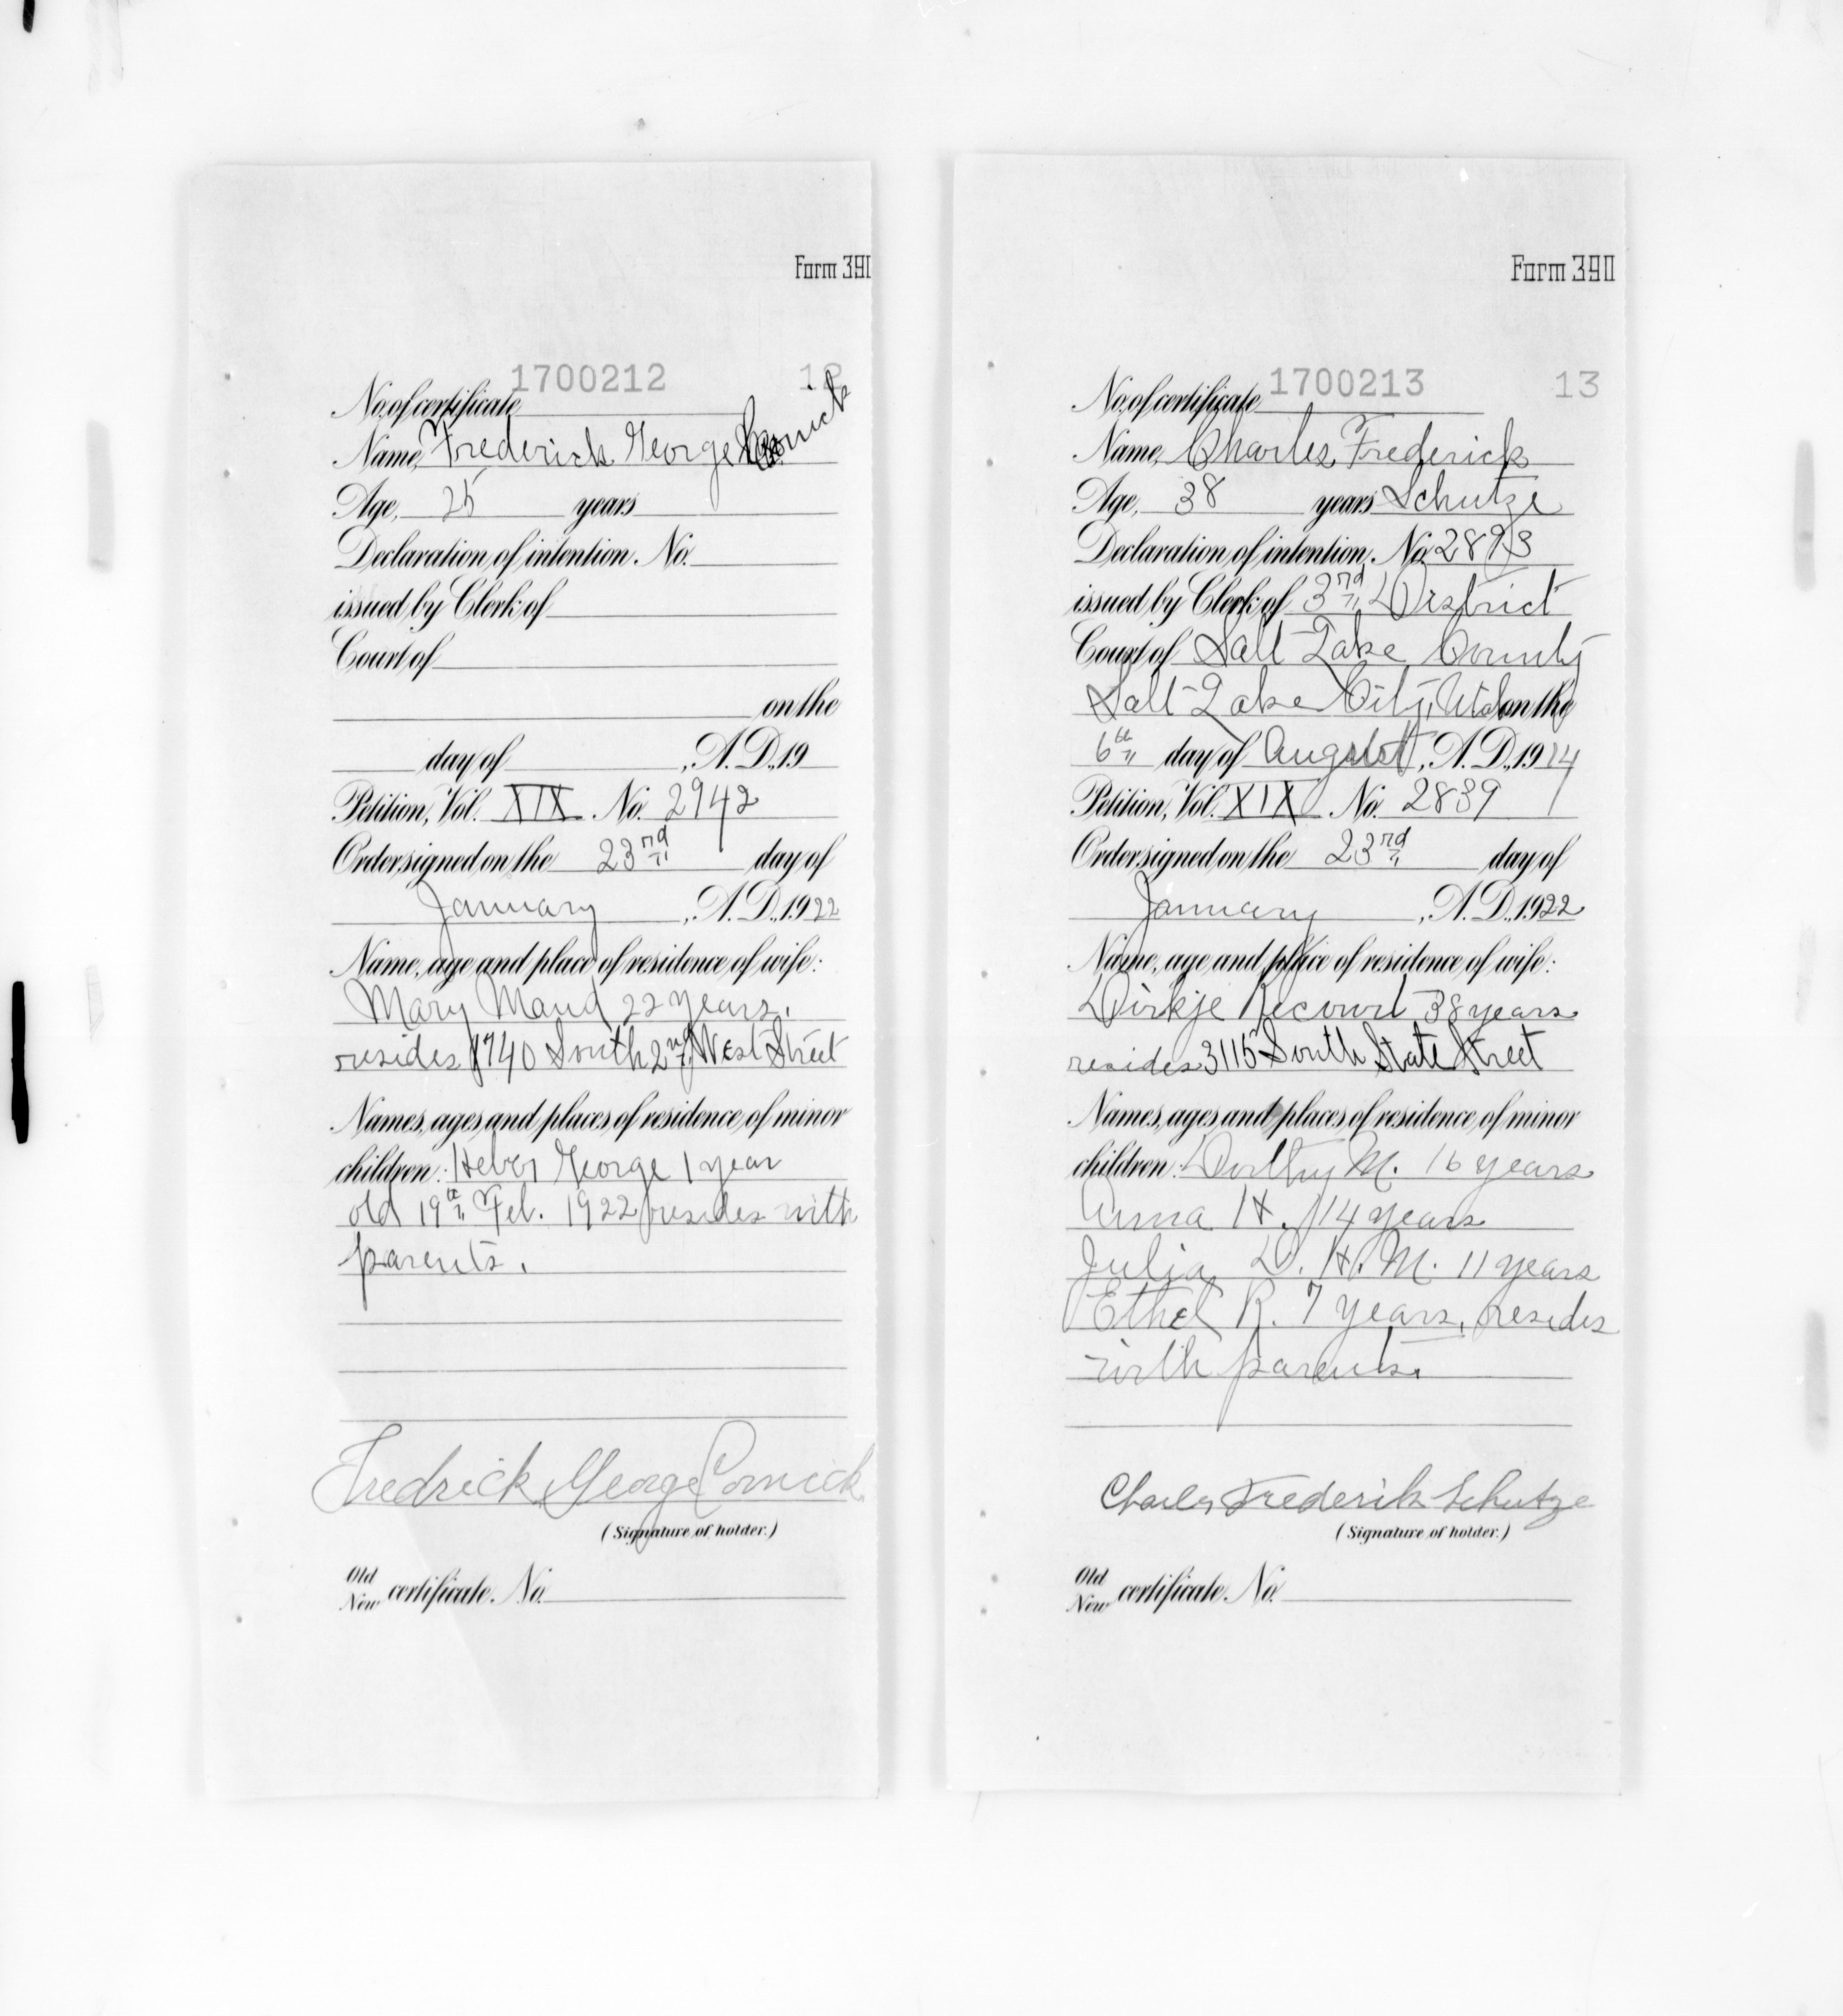 Form 390
1700212 12
No. of certificate
Name, Frederick George Cornick
Age, 25 years
Declaration of intention, No.
issued by Clerk of
Court of
on the
day of , A.D., 19
Petition, Vol. XIX No. 2942
Order signed on the 23rd day of
January , A.D., 1922
Name, age and place of residence of wife:
Mary Maud 22 years.
resides 1740 South 2nd West Street
Names, ages and places of residence of minor
children: Heber George 1 year
old 19th Feb. 1922 resides with
parents.
Fredrick George Cornick
(Signature of holder.)
Old
New certificate. No.
Form 390
1700213 13
No. of certificate
Name, Charles Frederick
Age, 38 years Schutze
Declaration of intention, No. 2893
issued by Clerk of 3rd District
Court of Salt Lake County
Salt Lake City, Utah on the
6th day of August, A.D., 1914
Petition, Vol. XIX No. 2839
Order signed on the 23rd day of
January , A.D., 1922
Name, age and place of residence of wife:
Dirkje 38 years
resides 3115 South State Street
Names, ages and places of residence of minor
children: Dorthy M. 16 years
Anna H. 14 years
Julia D. H. M. 11 years
Ethel R. 7 years, resides
with parents.
Charles Frederik Schutze
(Signature of holder.)
Old
New certificate. No.